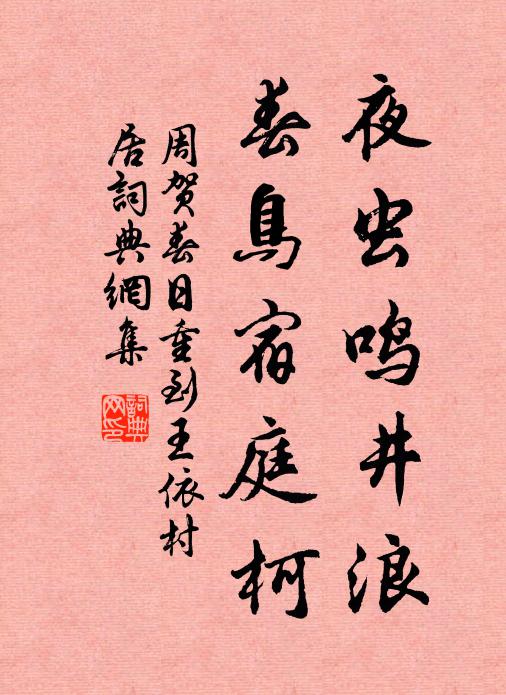 夜虫鸣井浪
春鳥宿庭柯
周贺春日重到王依村
居詞典網集
詞典网印